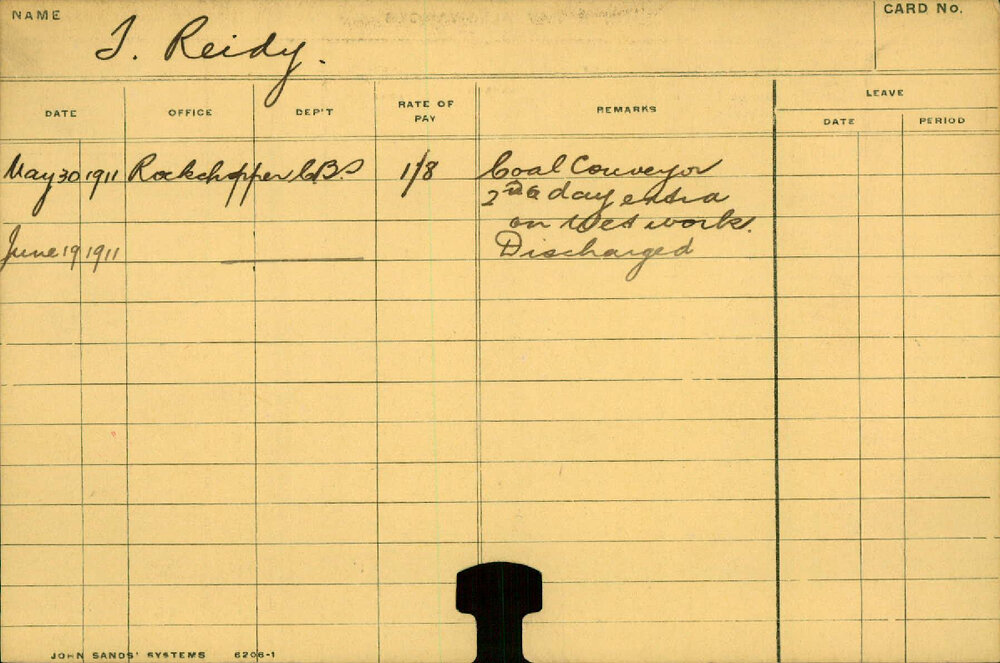 NAME
T. Reidy.
CARD No.
DATE OFFICE DEP'T RATE OF PAY REMARKS LEAVE
DATE PERIOD
May 30 1911 Rockchopper 1/8 Coal Conveyor
day extra
on wet work.
June 19 1911 Discharged
JOHN SANDS' SYSTEMS 6206-1